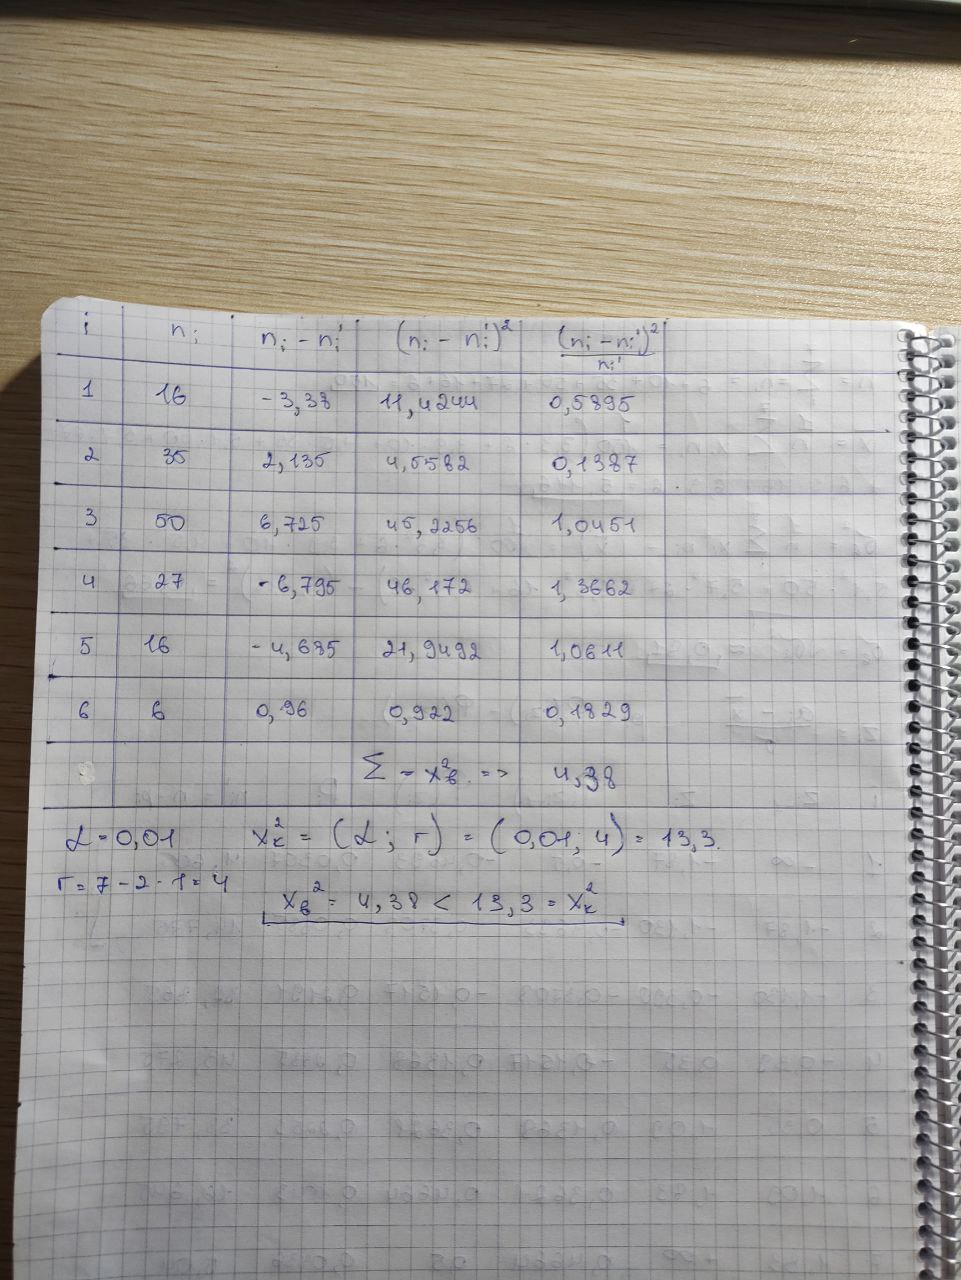 i nᵢ nᵢ - nᵢ' (nᵢ - nᵢ')² (nᵢ - nᵢ')²/nᵢ'
1 16 -3,38 11,4244 0,5895
2 35 2,135 4,5582 0,1387
3 50 6,725 45,2256 1,0451
4 27 -6,795 46,172 1,3662
5 16 -4,685 21,9492 1,0611
6 6 0,96 0,922 0,1829
Σ - χ²в => 4,38
α = 0,01 χ²к = (α; r) = (0,01; 4) = 13,3.
r = 7 - 2 - 1 = 4
χв² = 4,38 < 13,3 = χ²к